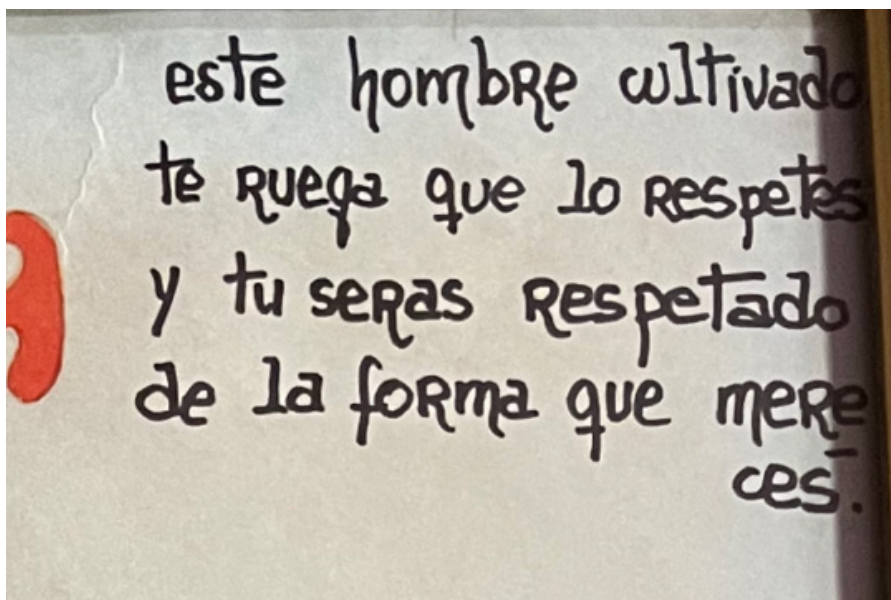 este hombre cultivado
te ruega que lo respetes
y tu seras respetado
de la forma que mere
ces.